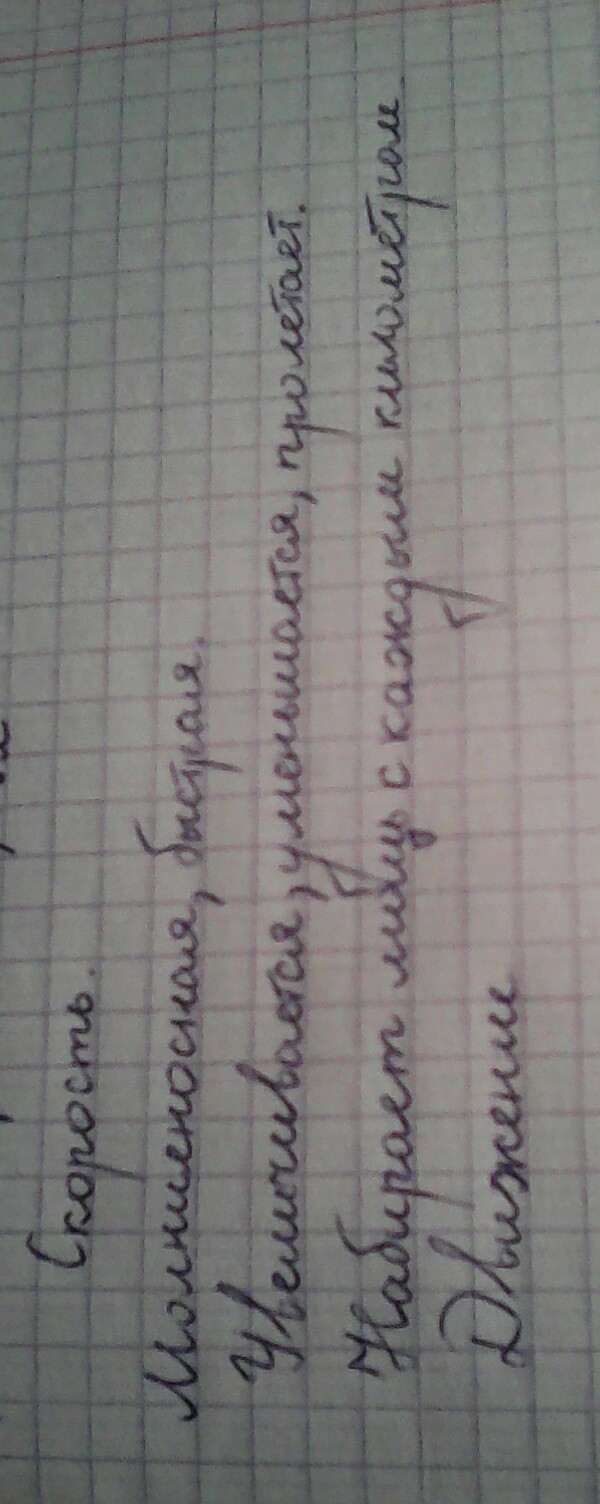 Скорость.
Молниеносная, быстрая.
Увеличивается, уменьшается, пролетает.
Набирает мощь с каждым километром
Движение